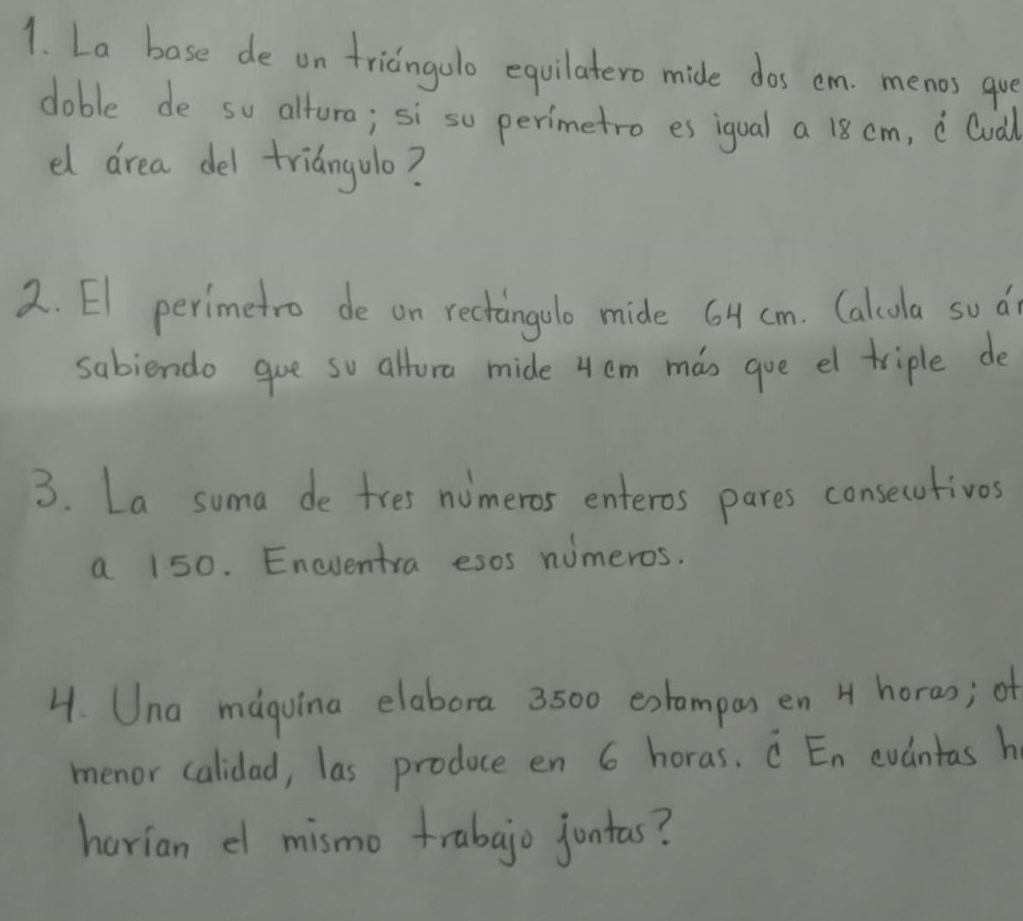 1. La base de un triángulo equilatero mide dos cm. menos que
doble de su altura; si su perímetro es igual a 18 cm, ¿ Cuál
el área del triángulo?
2. El perímetro de un rectángulo mide 64 cm. Calcula su ár
sabiendo que su altura mide 4 cm más que el triple de
3. La suma de tres números enteros pares consecutivos
a 150. Encuentra esos números.
4. Una máquina elabora 3500 estampas en 4 horas; ot
menor calidad, las produce en 6 horas. ¿ En cuántas h
harían el mismo trabajo juntas?